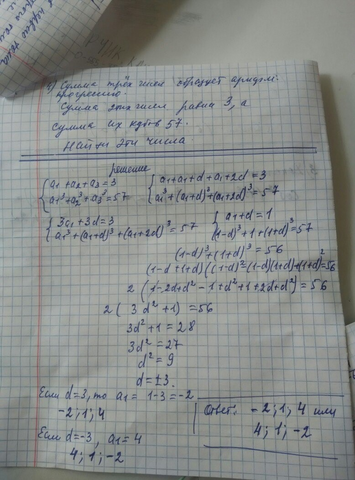 9) Сумма трёх чисел образует арифм. прогрессию.
Сумма этих чисел равна 3, а
сумма их кубов 57.
Найти эти числа
решение
{a₁+a₂+a₃=3
a₁³+a₂³+a₃³=57
{a₁+a₁+d+a₁+2d=3
a₁³+(a₁+d)³+(a₁+2d)³=57
{3a₁+3d=3
a₁³+(a₁+d)³+(a₁+2d)³=57
{a₁+d=1
(1-d)³+1+(1+d)³=57
(1-d)³+(1+d)³=56
(1-d+1+d)((1-d)²-(1-d)(1+d)+(1+d)²=56
2(1-2d+d²-1+d²+1+2d+d²)=56
2(3d²+1)=56
3d²+1=28
3d²=27
d²=9
d=±3.
Если d=3, то a₁= 1-3=-2
-2; 1; 4
Если d=-3, a₁=4
4; 1; -2
Ответ: -2; 1; 4 или
4; 1; -2